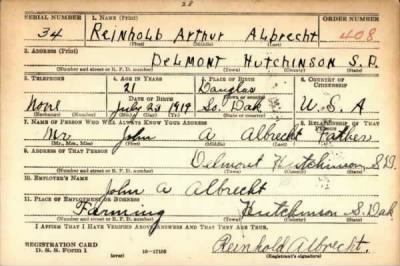 28
SERIAL NUMBER 1. NAME (Print) ORDER NUMBER
34 Reinhold Arthur Albrecht 408
(First) (Middle) (Last)
2. ADDRESS (Print)
Delmont Hutchinson S.D.
(Number and street or R. F. D. number) (Town) (County) (State)
3. TELEPHONE 4. AGE IN YEARS 5. PLACE OF BIRTH 6. COUNTRY OF CITIZENSHIP
21 Douglas
DATE OF BIRTH (Town or county)
None July 23 1919 So. Dak U.S.A
(Exchange) (Number) (Mo.) (Day) (Yr.) (State or country)
7. NAME OF PERSON WHO WILL ALWAYS KNOW YOUR ADDRESS 8. RELATIONSHIP OF THAT PERSON
Mr. John A Albrecht Father
(Mr., Mrs., Miss) (First) (Middle) (Last)
9. ADDRESS OF THAT PERSON
Delmont Hutchinson S.D.
(Number and street or R. F. D. number) (Town) (County) (State)
10. EMPLOYER'S NAME
John A Albrecht
11. PLACE OF EMPLOYMENT OR BUSINESS
Farming Hutchinson S. Dak.
(Number and street or R. F. D. number) (Town) (County) (State)
I AFFIRM THAT I HAVE VERIFIED ABOVE ANSWERS AND THAT THEY ARE TRUE.
REGISTRATION CARD
D. S. S. Form 1 16-17105 Reinhold Albrecht.
(Registrant's signature)